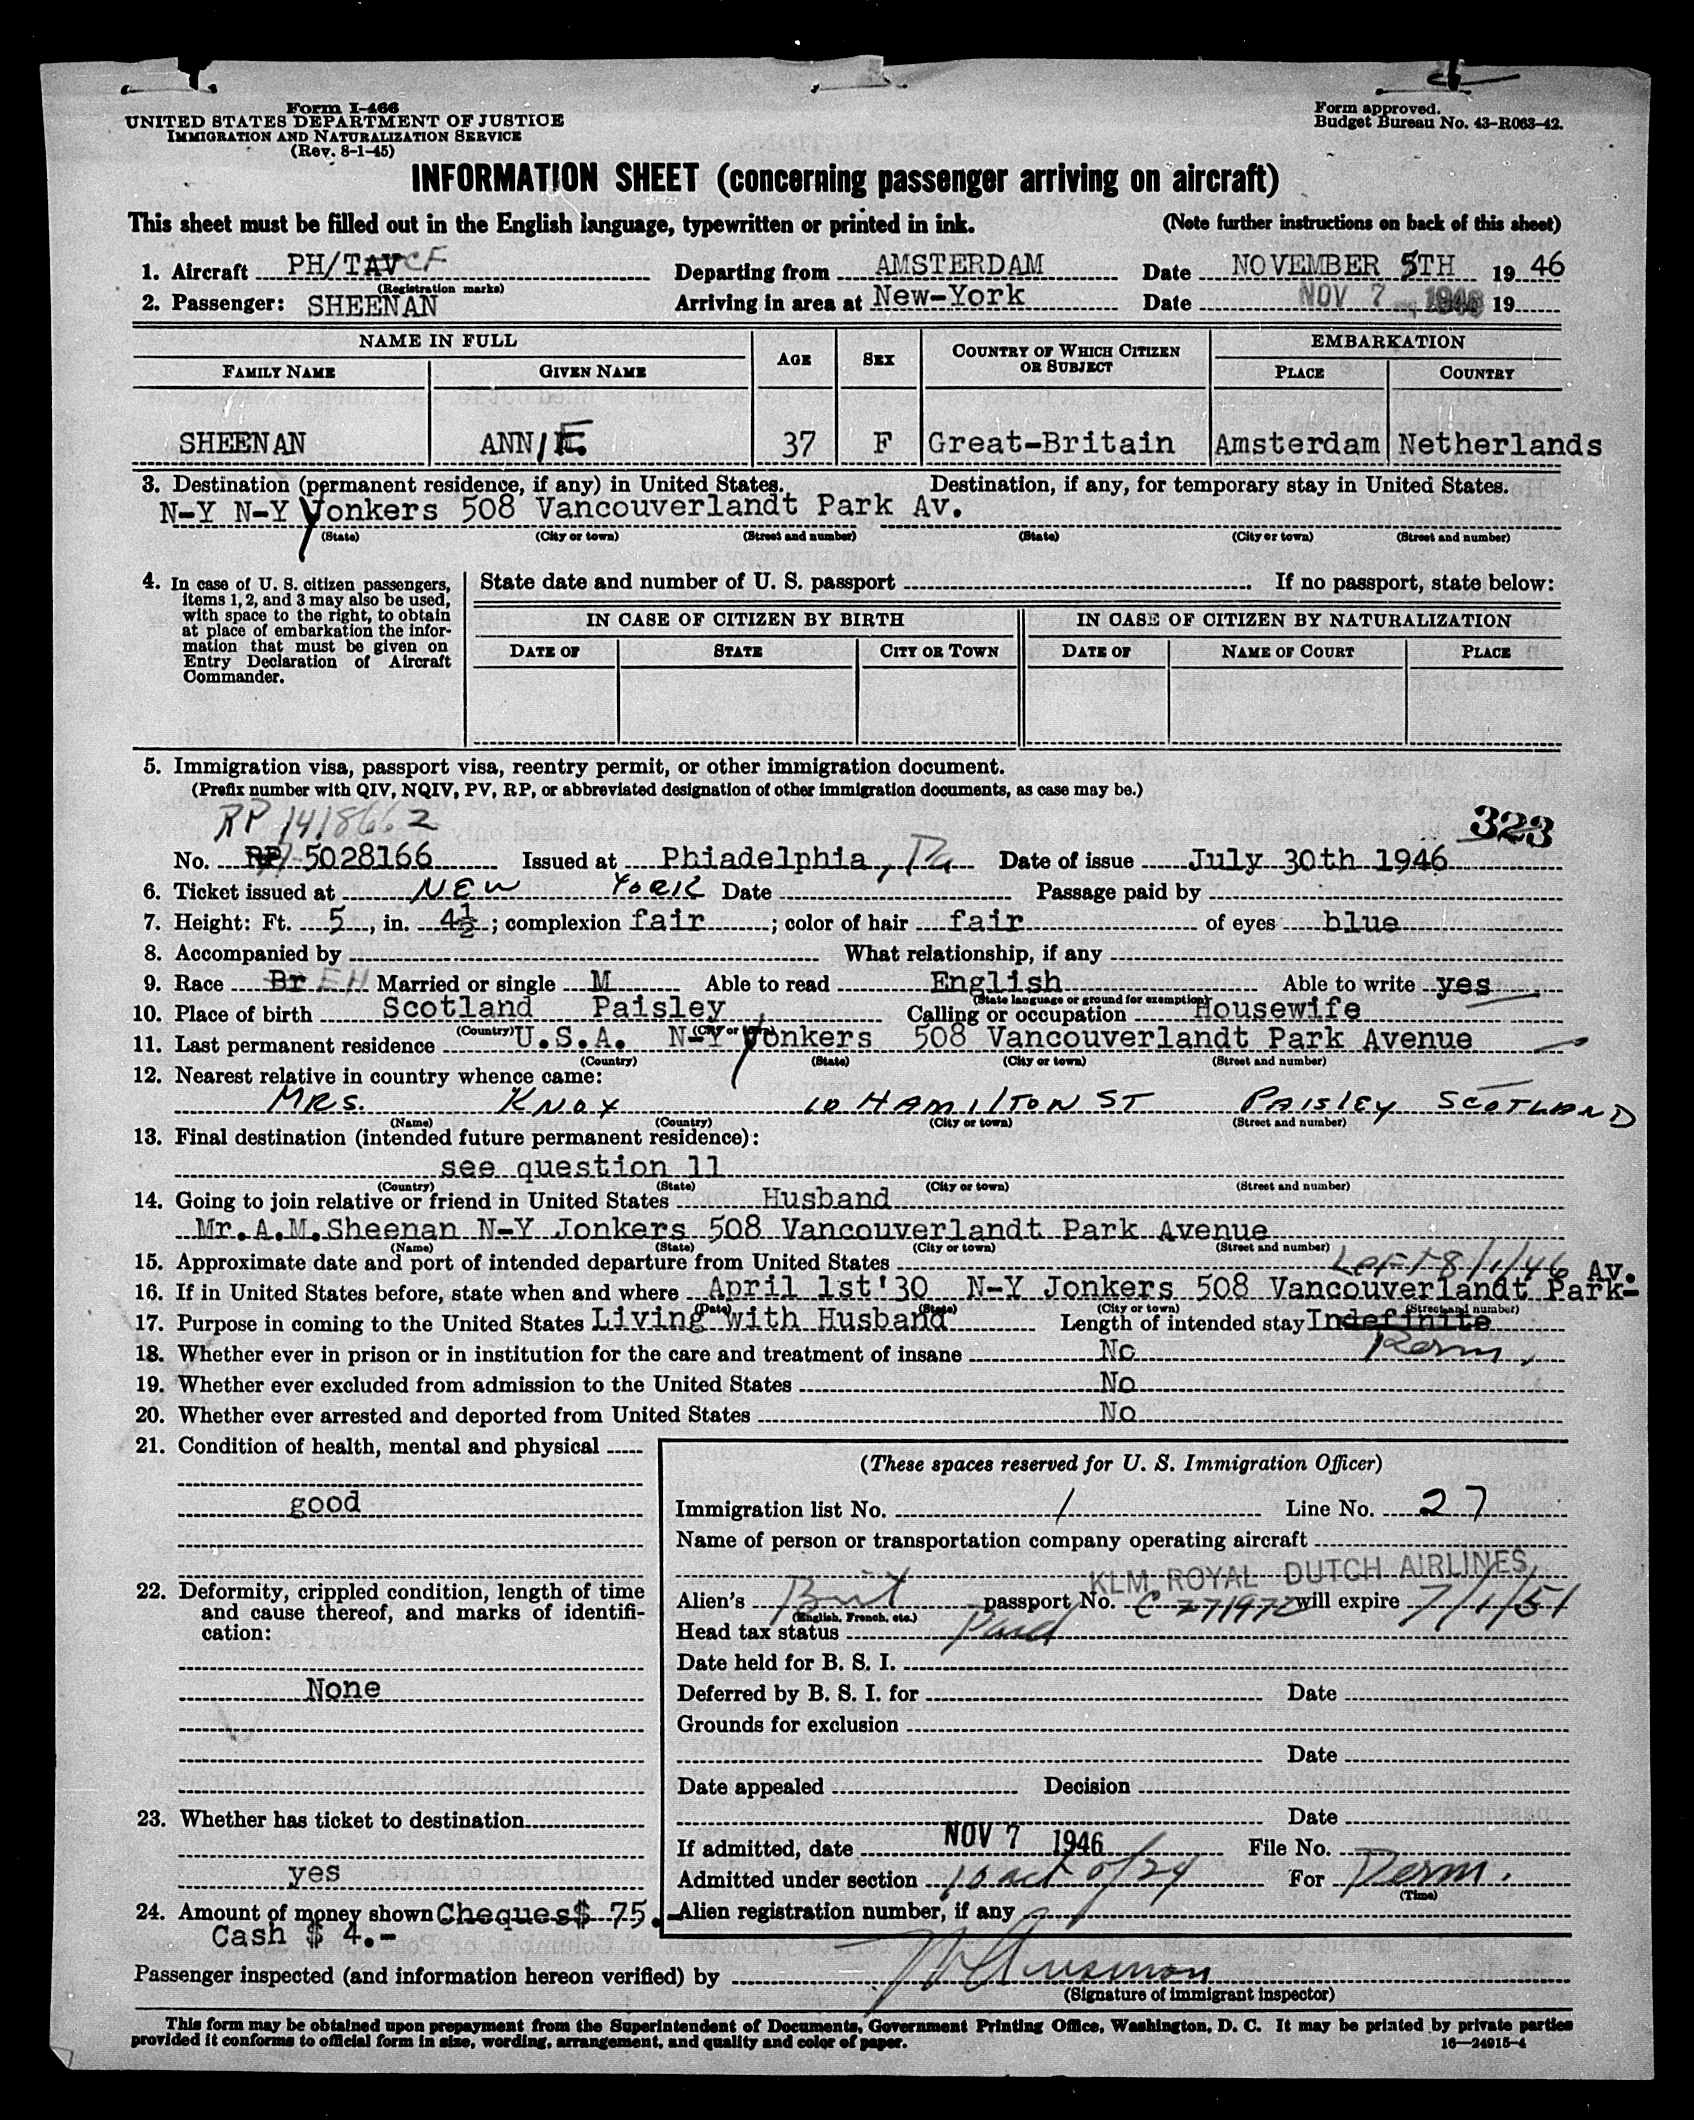 Form I-466
UNITED STATES DEPARTMENT OF JUSTICE
IMMIGRATION AND NATURALIZATION SERVICE
(Rev. 8-1-45)
Form approved.
Budget Bureau No. 43-R063-42.
INFORMATION SHEET (concerning passenger arriving on aircraft)
This sheet must be filled out in the English language, typewritten or printed in ink. (Note further instructions on back of this sheet)
1. Aircraft PH/TAVCF Departing from AMSTERDAM Date NOVEMBER 5TH 19 46
(Registration marks)
2. Passenger: SHEENAN Arriving in area at New-York Date NOV 7 1946 19
NAME IN FULL AGE SEX COUNTRY OF WHICH CITIZEN OR SUBJECT EMBARKATION
FAMILY NAME GIVEN NAME PLACE COUNTRY
SHEENAN ANN/E. 37 F Great-Britain Amsterdam Netherlands
3. Destination (permanent residence, if any) in United States. Destination, if any, for temporary stay in United States.
N-Y N-Y Yonkers 508 Vancouverlandt Park Av.
(State) (City or town) (Street and number) (State) (City or town) (Street and number)
4. In case of U. S. citizen passengers, items 1, 2, and 3 may also be used, with space to the right, to obtain at place of embarkation the information that must be given on Entry Declaration of Aircraft Commander.
State date and number of U. S. passport If no passport, state below:
IN CASE OF CITIZEN BY BIRTH IN CASE OF CITIZEN BY NATURALIZATION
DATE OF STATE CITY OR TOWN DATE OF NAME OF COURT PLACE
5. Immigration visa, passport visa, reentry permit, or other immigration document.
(Prefix number with QIV, NQIV, PV, RP, or abbreviated designation of other immigration documents, as case may be.)
RP 1418662 323
No. RP 5028166 Issued at Phiadelphia, Pa Date of issue July 30th 1946
6. Ticket issued at NEW YORK Date Passage paid by
7. Height: Ft. 5, in. 4½; complexion fair; color of hair fair of eyes blue
8. Accompanied by What relationship, if any
9. Race Br EH Married or single M Able to read English Able to write yes
(State language or ground for exemption)
10. Place of birth Scotland Paisley Calling or occupation Housewife
(Country) (City or town)
11. Last permanent residence U.S.A. N-Y Yonkers 508 Vancouverlandt Park Avenue
(Country) (State) (City or town) (Street and number)
12. Nearest relative in country whence came:
MRS. KNOX 10 HAMILTON ST PAISLEY SCOTLAND
(Name) (Country) (City or town) (Street and number)
13. Final destination (intended future permanent residence):
see question 11
(Country) (State) (City or town) (Street and number)
14. Going to join relative or friend in United States Husband
Mr. A.M. Sheenan N-Y Jonkers 508 Vancouverlandt Park Avenue
(Name) (State) (City or town) (Street and number)
15. Approximate date and port of intended departure from United States Left 8/1/46
16. If in United States before, state when and where April 1st'30 N-Y Jonkers 508 Vancouverlandt Park- Av.
(Date) (State) (City or town) (Street and number)
17. Purpose in coming to the United States Living with Husband Length of intended stay Indefinite
Perm.
18. Whether ever in prison or in institution for the care and treatment of insane No
19. Whether ever excluded from admission to the United States No
20. Whether ever arrested and deported from United States No
21. Condition of health, mental and physical
good
22. Deformity, crippled condition, length of time and cause thereof, and marks of identification:
None
23. Whether has ticket to destination
yes
24. Amount of money shown Cheques $ 75.-
Cash $ 4.-
(These spaces reserved for U. S. Immigration Officer)
Immigration list No. 1 Line No. 27
Name of person or transportation company operating aircraft
KLM ROYAL DUTCH AIRLINES
Alien's Brit passport No. C 271972 will expire 7/1/51
(English, French, etc.)
Head tax status Paid
Date held for B. S. I.
Deferred by B. S. I. for Date
Grounds for exclusion
Date
Date appealed Decision
Date
If admitted, date NOV 7 1946 File No.
Admitted under section 10 act of 24 For Perm.
(Time)
Alien registration number, if any
Passenger inspected (and information hereon verified) by
(Signature of immigrant inspector)
This form may be obtained upon prepayment from the Superintendent of Documents, Government Printing Office, Washington, D. C. It may be printed by private parties
provided it conforms to official form in size, wording, arrangement, and quality and color of paper. 16-24915-4